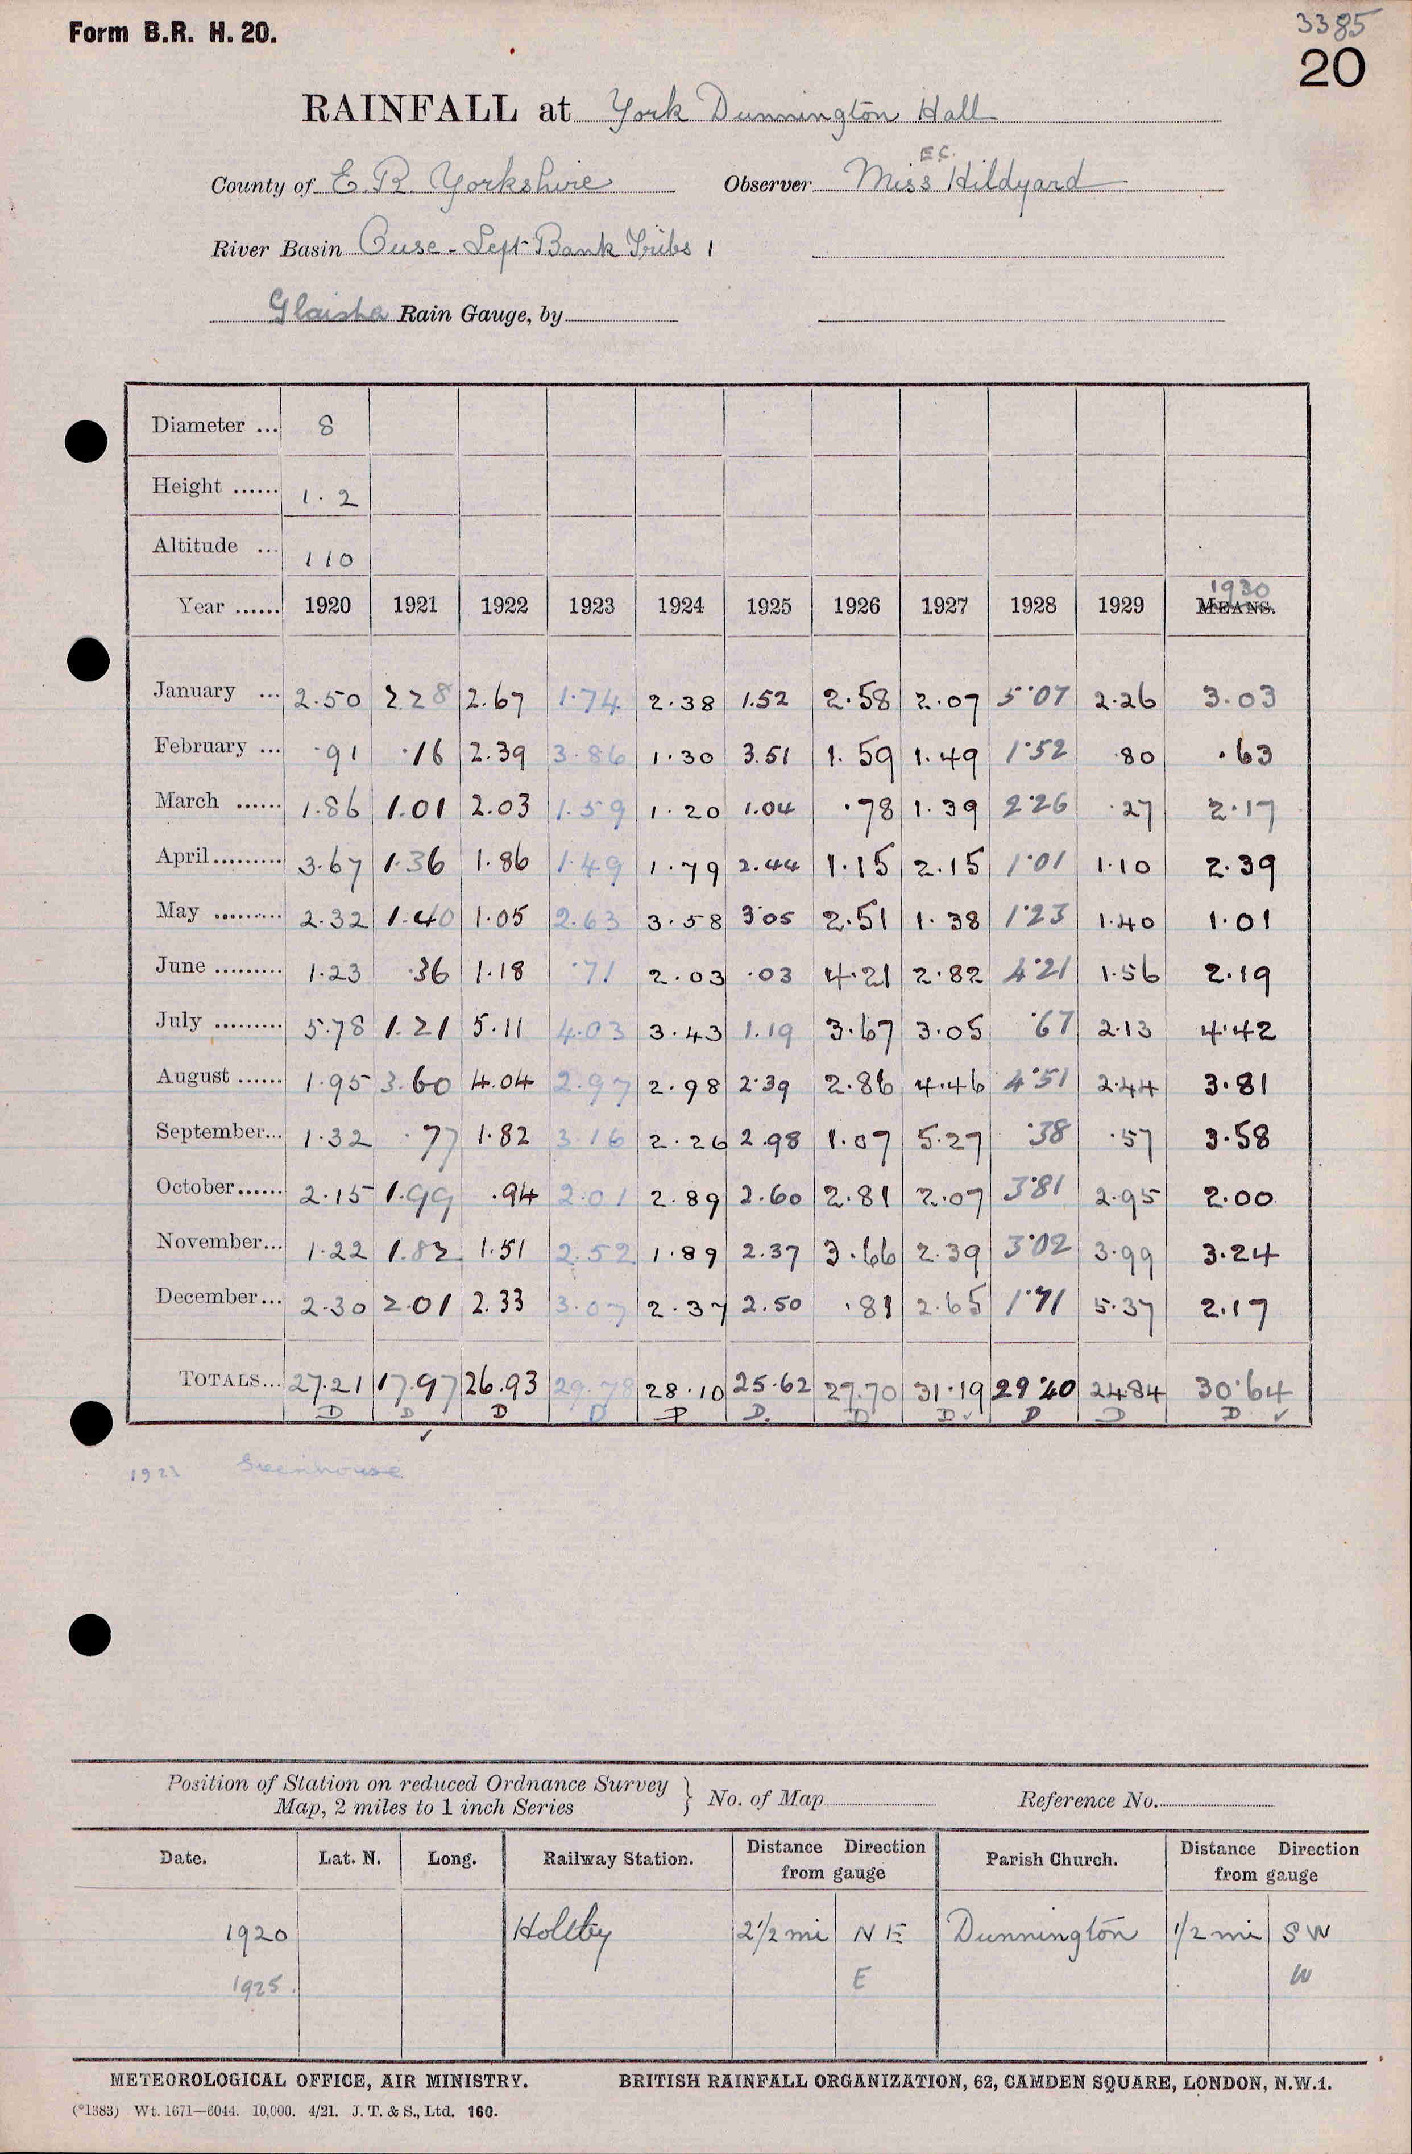 Form B.R. H. 20.
3385
20
RAINFALL at York Dunnington Hall
County of E. R. Yorkshire Observer Miss E C. Hildyard
River Basin Ouse - Left Bank Tribs 1
Glaisher Rain Gauge, by
Diameter ... 8
Height ...... 1.2
Altitude ... 110
Year ...... 1920 1921 1922 1923 1924 1925 1926 1927 1928 1929 MEANS. 1930
January ... 2.50 2.28 2.67 1.74 2.38 1.52 2.58 2.07 5.07 2.26 3.03
February ... .91 .16 2.39 3.86 1.30 3.51 1.59 1.49 1.52 .80 .63
March ...... 1.86 1.01 2.03 1.59 1.20 1.04 .78 1.39 2.26 .27 2.17
April......... 3.67 1.36 1.86 1.49 1.79 2.44 1.15 2.15 1.01 1.10 2.39
May ......... 2.32 1.40 1.05 2.63 3.58 3.05 2.51 1.38 1.23 1.40 1.01
June ......... 1.23 .36 1.18 .71 2.03 .03 4.21 2.82 4.21 1.56 2.19
July ......... 5.78 1.21 5.11 4.03 3.43 1.19 3.67 3.05 .67 2.13 4.42
August ...... 1.95 3.60 4.04 2.97 2.98 2.39 2.86 4.46 4.51 2.44 3.81
September... 1.32 .77 1.82 3.16 2.26 2.98 1.07 5.27 .38 .57 3.58
October...... 2.15 1.99 .94 2.01 2.89 2.60 2.81 2.07 3.81 2.95 2.00
November... 1.22 1.82 1.51 2.52 1.89 2.37 3.66 2.39 3.02 3.99 3.24
December... 2.30 2.01 2.33 3.07 2.37 2.50 .81 2.65 1.71 5.37 2.17
TOTALS... 27.21 17.97 26.93 29.78 28.10 25.62 27.70 31.19 29.40 24.84 30.64
D D D D D D. D D ✓ D D D ✓
✓
1923 Greenhouse
Position of Station on reduced Ordnance Survey
Map, 2 miles to 1 inch Series } No. of Map Reference No.
Date. Lat. N. Long. Railway Station. Distance Direction from gauge Parish Church. Distance Direction from gauge
1920 Holtby 2 1/2 mi N E Dunnington 1/2 mi S W
1925. E W
METEOROLOGICAL OFFICE, AIR MINISTRY. BRITISH RAINFALL ORGANIZATION, 62, CAMDEN SQUARE, LONDON, N.W.1.
(*1383) Wt. 1671—6044. 10,000. 4/21. J. T. & S., Ltd. 160.